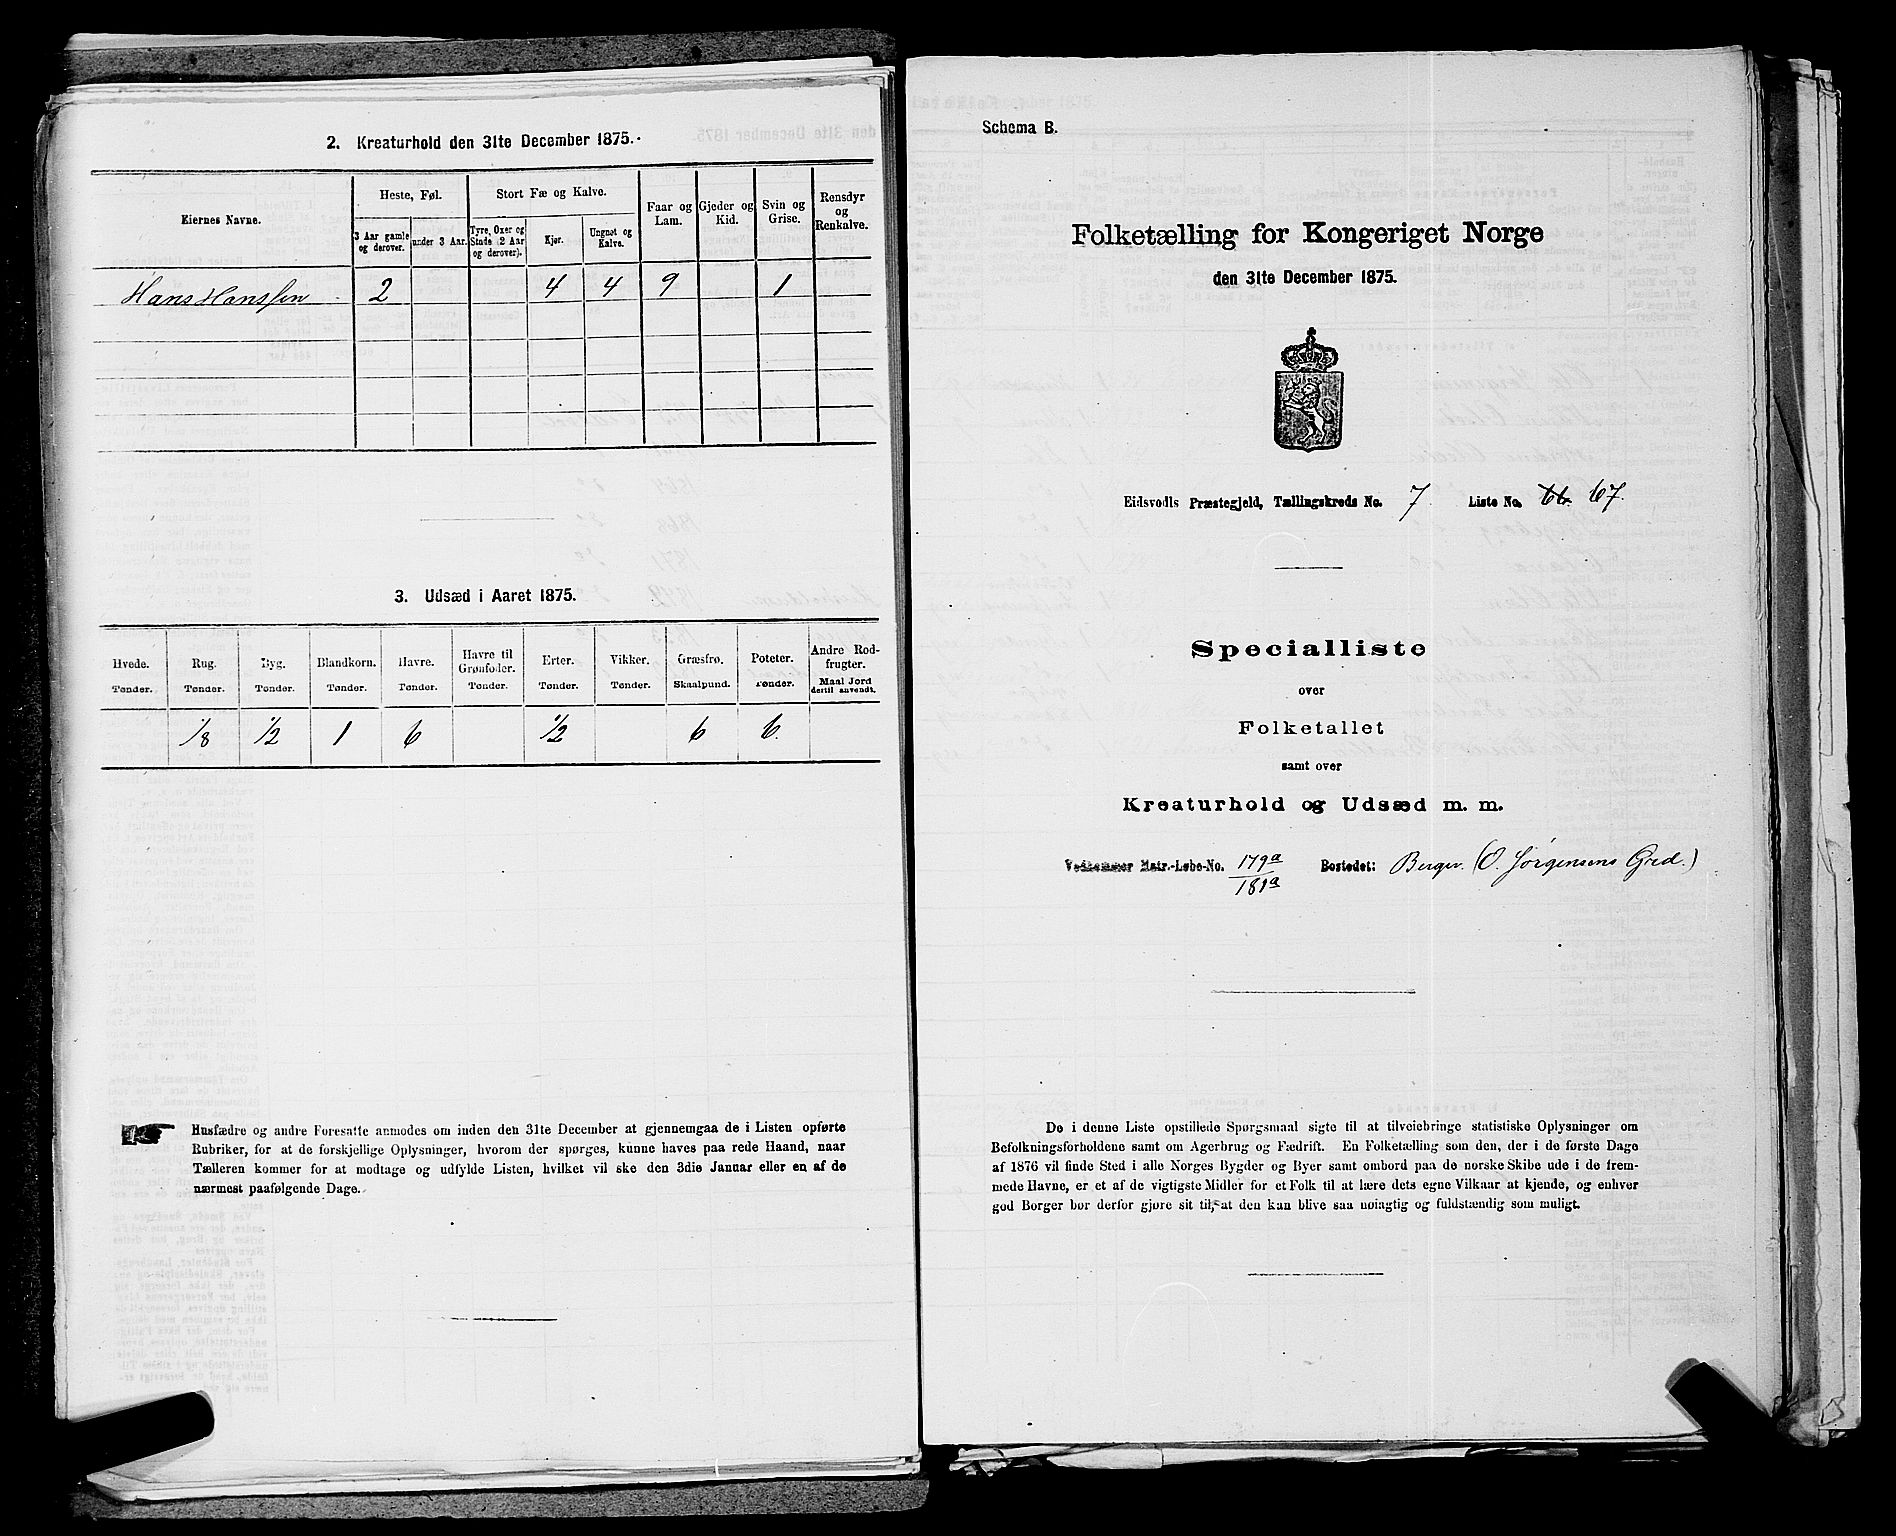 2. Kreaturhold den 31te December 1875.
Eiernes Navne.
Heste, Føl.
3 Aar gamle og derover.
under 3 Aar.
Stort Fæ og Kalve.
Tyre, Oxer og Stude (2 Aar og derover).
Kjør.
Ungnøt og Kalve.
Faar og Lam.
Gjeder og Kid.
Svin og Grise.
Rensdyr og Renkalve.
Hans Hanssen 2 4 4 9 1
3. Udsæd i Aaret 1875.
Hvede. Rug. Byg. Blandkorn. Havre. Havre til Grønfoder. Erter. Vikker. Græsfrø. Poteter. Andre Rodfrugter.
Tønder. Tønder. Tønder. Tønder. Tønder. Tønder. Tønder. Tønder. Skaalpund. Tønder. Maal Jord dertil anvendt.
1/8 1/2 1 6 1/2 6 6
Husfædre og andre Foresatte anmodes om inden den 31te December at gjennemgaa de i Listen opførte
Rubriker, for at de forskjellige Oplysninger, hvorom der spørges, kunne haves paa rede Haand, naar
Tælleren kommer for at modtage og udfylde Listen, hvilket vil ske den 3die Januar eller en af de
nærmest paafølgende Dage.
Schema B.
Folketælling for Kongeriget Norge
den 31te December 1875.
Eidsvolls Præstegjeld, Tællingskreds No. 7. Liste No. 66. 67.
Specialliste
over
Folketallet
samt over
Kreaturhold og Udsæd m. m.
Vedkommer Matr.-Løbe-No. 179a/181a Bostedet: Berger. (O. Jørgensens Grd.)
De i denne Liste opstillede Spørgsmaal sigte til at tilveiebringe statistiske Oplysninger om
Befolkningsforholdene samt om Agerbrug og Fædrift. En Folketælling som den, der i de første Dage
af 1876 vil finde Sted i alle Norges Bygder og Byer samt ombord paa de norske Skibe ude i de frem-
mede Havne, er et af de vigtigste Midler for et Folk til at lære dets egne Vilkaar at kjende, og enhver
god Borger bør derfor gjøre sit til, at den kan blive saa nøiagtig og fuldstændig som muligt.